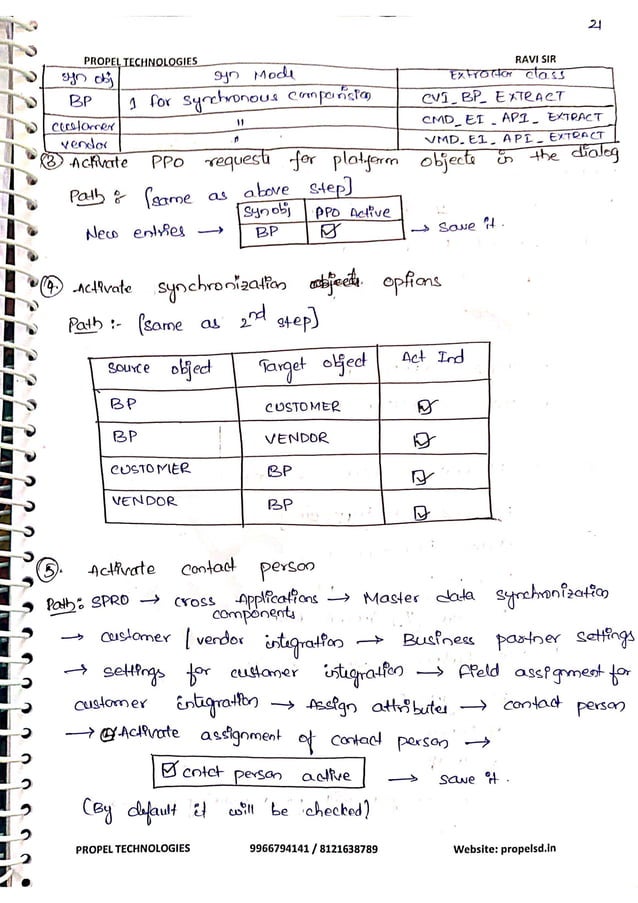 21
PROPEL TECHNOLOGIES RAVI SIR
syn obj syn Mode Extractor class
BP 1 for synchronous comparision CVI_BP_EXTRACT
customer " CMD_EI_API_EXTRACT
vendor " VMD_EI_API_EXTRACT
(3) Activate PPO requests for platform objects in the dialog
Path : [same as above step]
Syn obj PPO Active
New entries → BP ☑ → save it.
(4). Activate synchronization options
Path :- [same as 2nd step]
Source object Target object Act Ind
BP CUSTOMER ☑
BP VENDOR ☑
CUSTOMER BP ☑
VENDOR BP ☑
(5). Activate contact person
Path: SPRO → cross Applications → Master data synchronization
components
→ customer / vendor integration → Business partner settings
→ settings for customer integration → field assignment for
customer integration → Assign attributes → contact person
→ Activate assignment of contact person →
☑ cntct person active → save it.
(By default it will be checked)
PROPEL TECHNOLOGIES 9966794141 / 8121638789 Website: propelsd.in